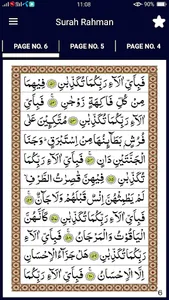 11:08
Surah Rahman
PAGE NO. 6 PAGE NO. 5 PAGE NO. 4
فَبِاَيِّ اٰلَآءِ رَبِّكُمَا تُكَذِّبٰنِ ۝ فِيْهِمَا
مِنْ كُلِّ فَاكِهَةٍ زَوْجٰنِ ۝ فَبِاَيِّ
اٰلَآءِ رَبِّكُمَا تُكَذِّبٰنِ ۝ مُتَّكِـِٕيْنَ عَلٰى
فُرُشٍۭ بَطَآىِٕنُهَا مِنْ اِسْتَبْرَقٍ ؕ وَجَنَا
الْجَنَّتَيْنِ دَانٍ ۝ فَبِاَيِّ اٰلَآءِ
رَبِّكُمَا تُكَذِّبٰنِ ۝ فِيْهِنَّ قٰصِرٰتُ الطَّرْفِ ۙ
لَمْ يَطْمِثْهُنَّ اِنْسٌ قَبْلَهُمْ وَلَا جَآنٌّ ۝
فَبِاَيِّ اٰلَآءِ رَبِّكُمَا تُكَذِّبٰنِ ۝ كَاَنَّهُنَّ
الْيَاقُوْتُ وَالْمَرْجَانُ ۝ فَبِاَيِّ اٰلَآءِ
رَبِّكُمَا تُكَذِّبٰنِ ۝ هَلْ جَزَآءُ الْاِحْسَانِ
اِلَّا الْاِحْسَانُ ۝ فَبِاَيِّ اٰلَآءِ رَبِّكُمَا
6